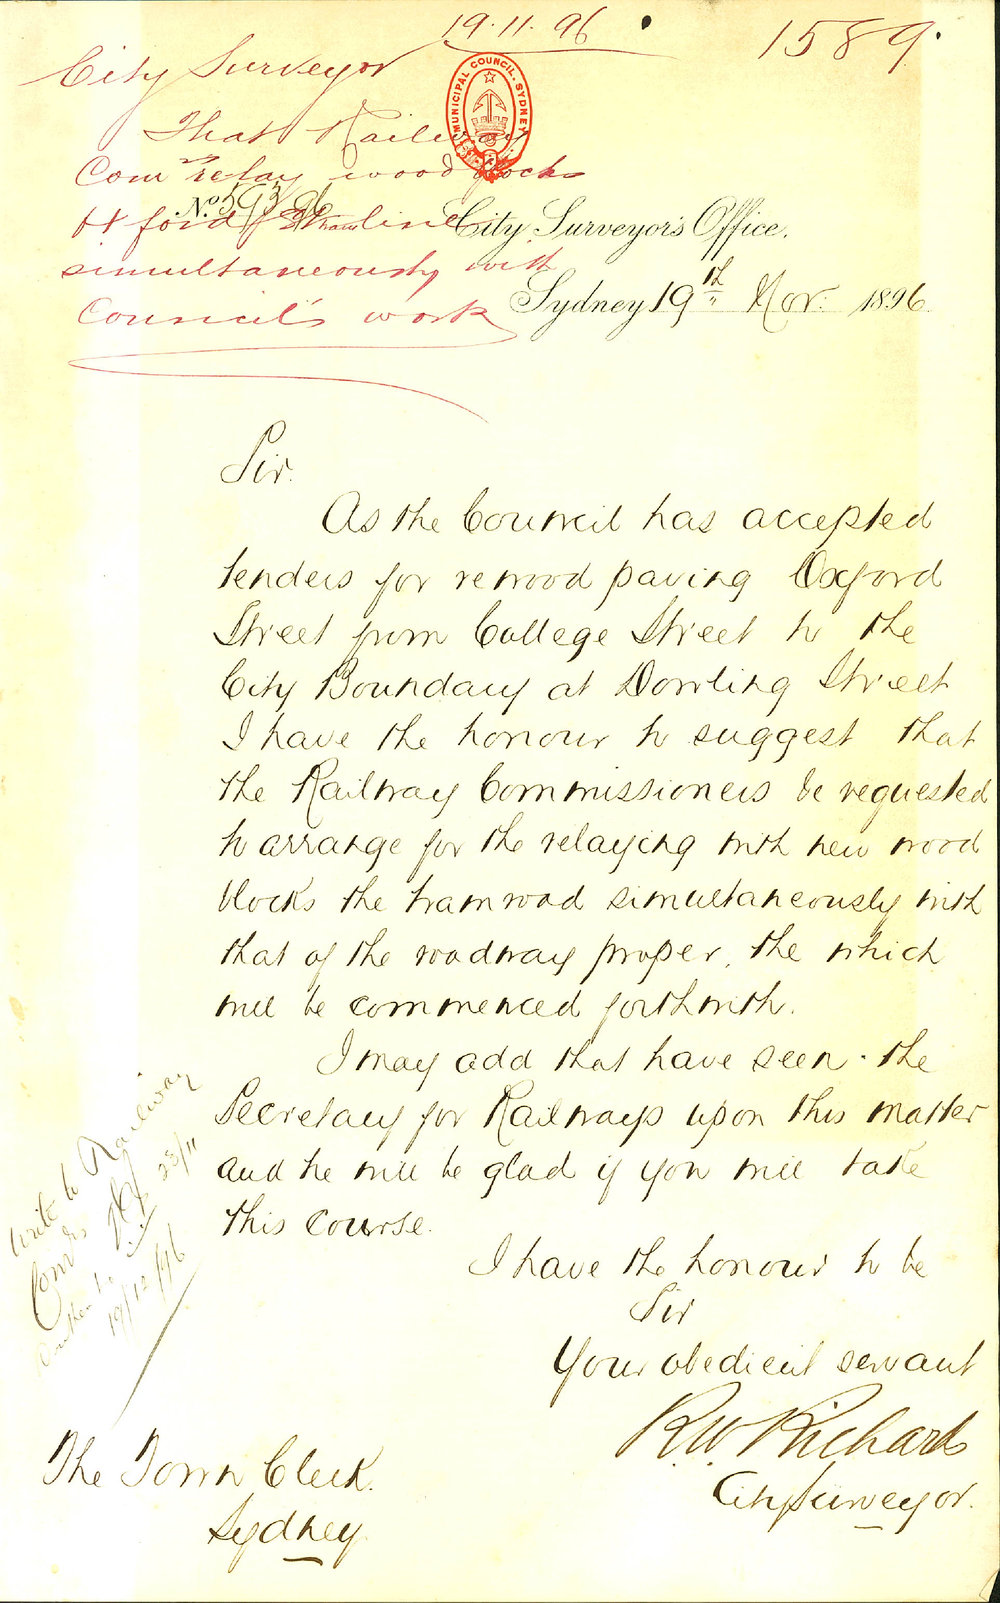 19.11.96
1589
City Surveyor
That Railway
Com rs relay wood blocks
simultaneously with
Council's work
MUNICIPAL COUNCIL. SYDNEY
No 593/96
City Surveyor's Office,
Sydney 19th Nov: 1896
Sir.
As the Council has accepted
tenders for rewood paving Oxford
Street from College Street to the
City Boundary at Dowling Street
I have the honour to suggest that
the Railway Commissioners be requested
to arrange for the relaying with new wood
blocks the tramroad simultaneously with
that of the roadway proper, the which
will be commenced forthwith.
I may add that have seen the
Secretary for Railways upon this matter
and he will be glad if you will take
this course.
I have the honour to be
Sir
Your obedient servant
R.W. Richards
City Surveyor.
The Town Clerk.
Sydney
Write to Railway
Comrs
23/11
19/12/96